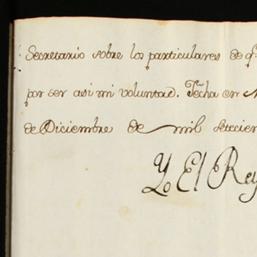 Secretario sobre los particulares de q
por ser asi mi voluntad. Fecha en
de Diciembre de mil setecien
Yo El Rey